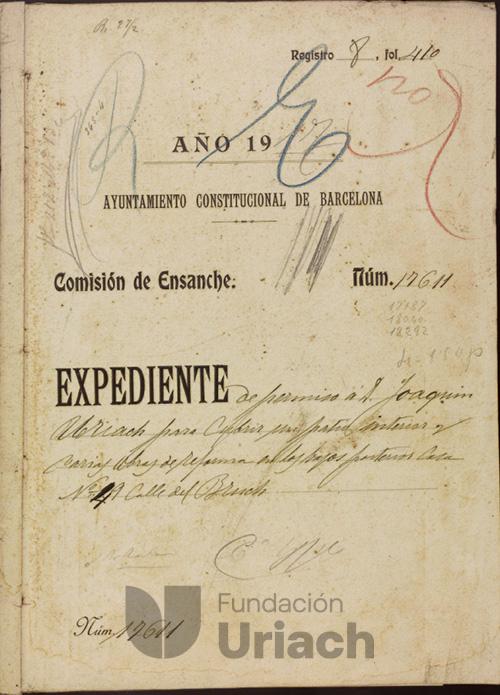 Registro 8, fol 410
AÑO 19
AYUNTAMIENTO CONSTITUCIONAL DE BARCELONA
Comisión de Ensanche.
Núm. 17611
18292
EXPEDIENTE de permiso á D. Joaquin
Uriach para Cubrir un patio interior y
varias obras de reforma en los bajos posterior Casa
Nº 49 Calle del Bruch
Núm. 17611
Fundación
Uriach